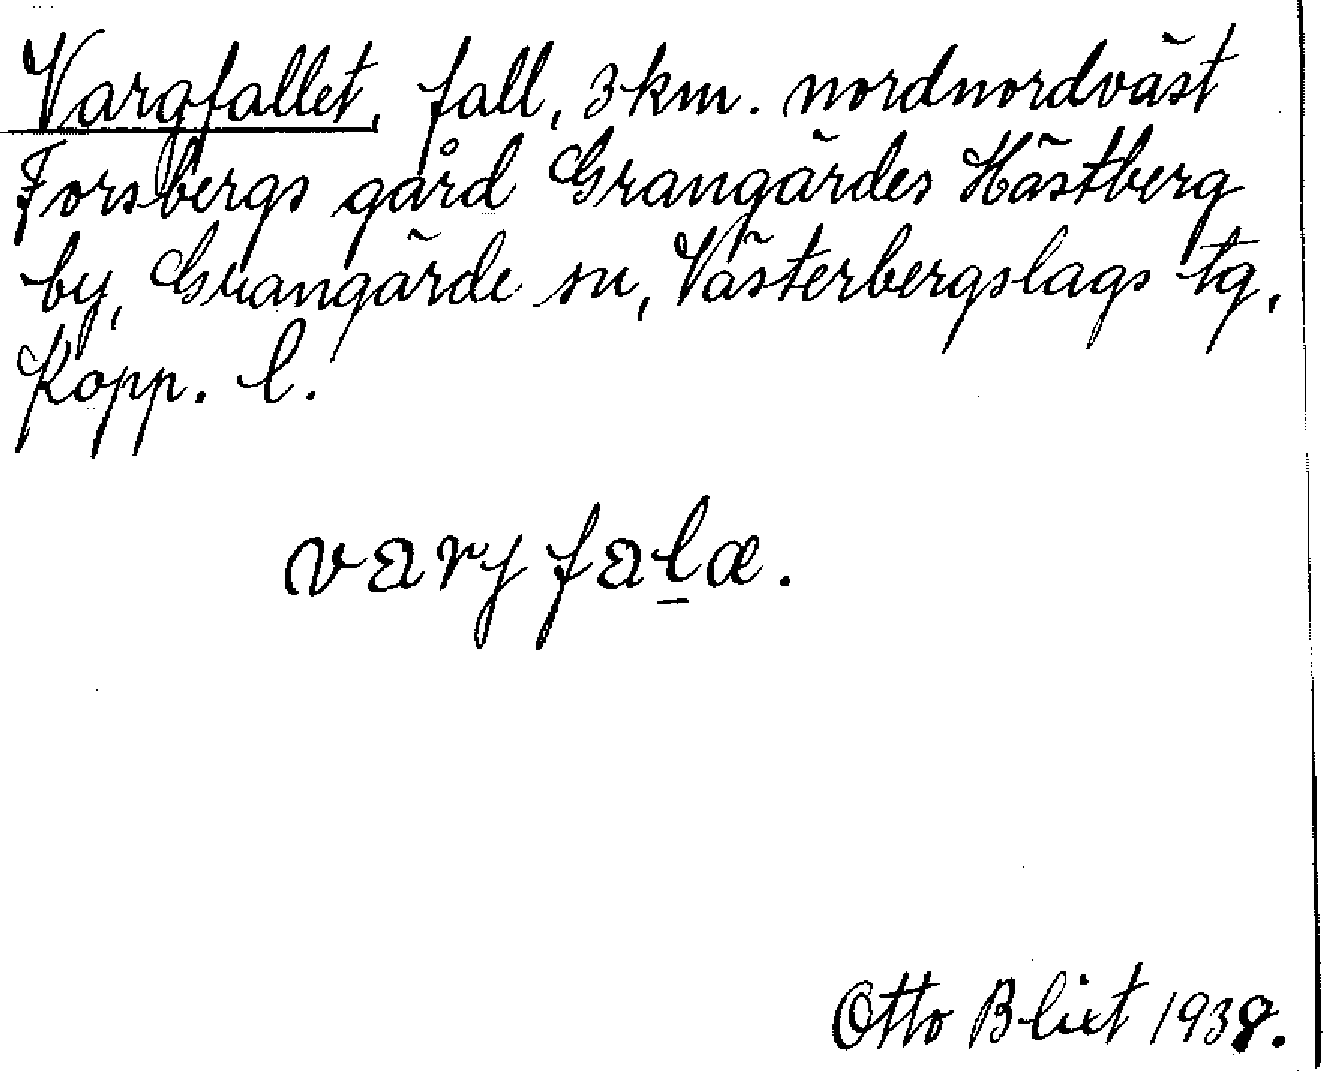 Vargfallet, fall, 3 km. nordnordväst
Forsbergs gård Grangärdes Hästberg
by, Grangärde sn, Västerbergslags tg,
Kopp. l.
varj fal̲æ.
Otto Blixt 1938.